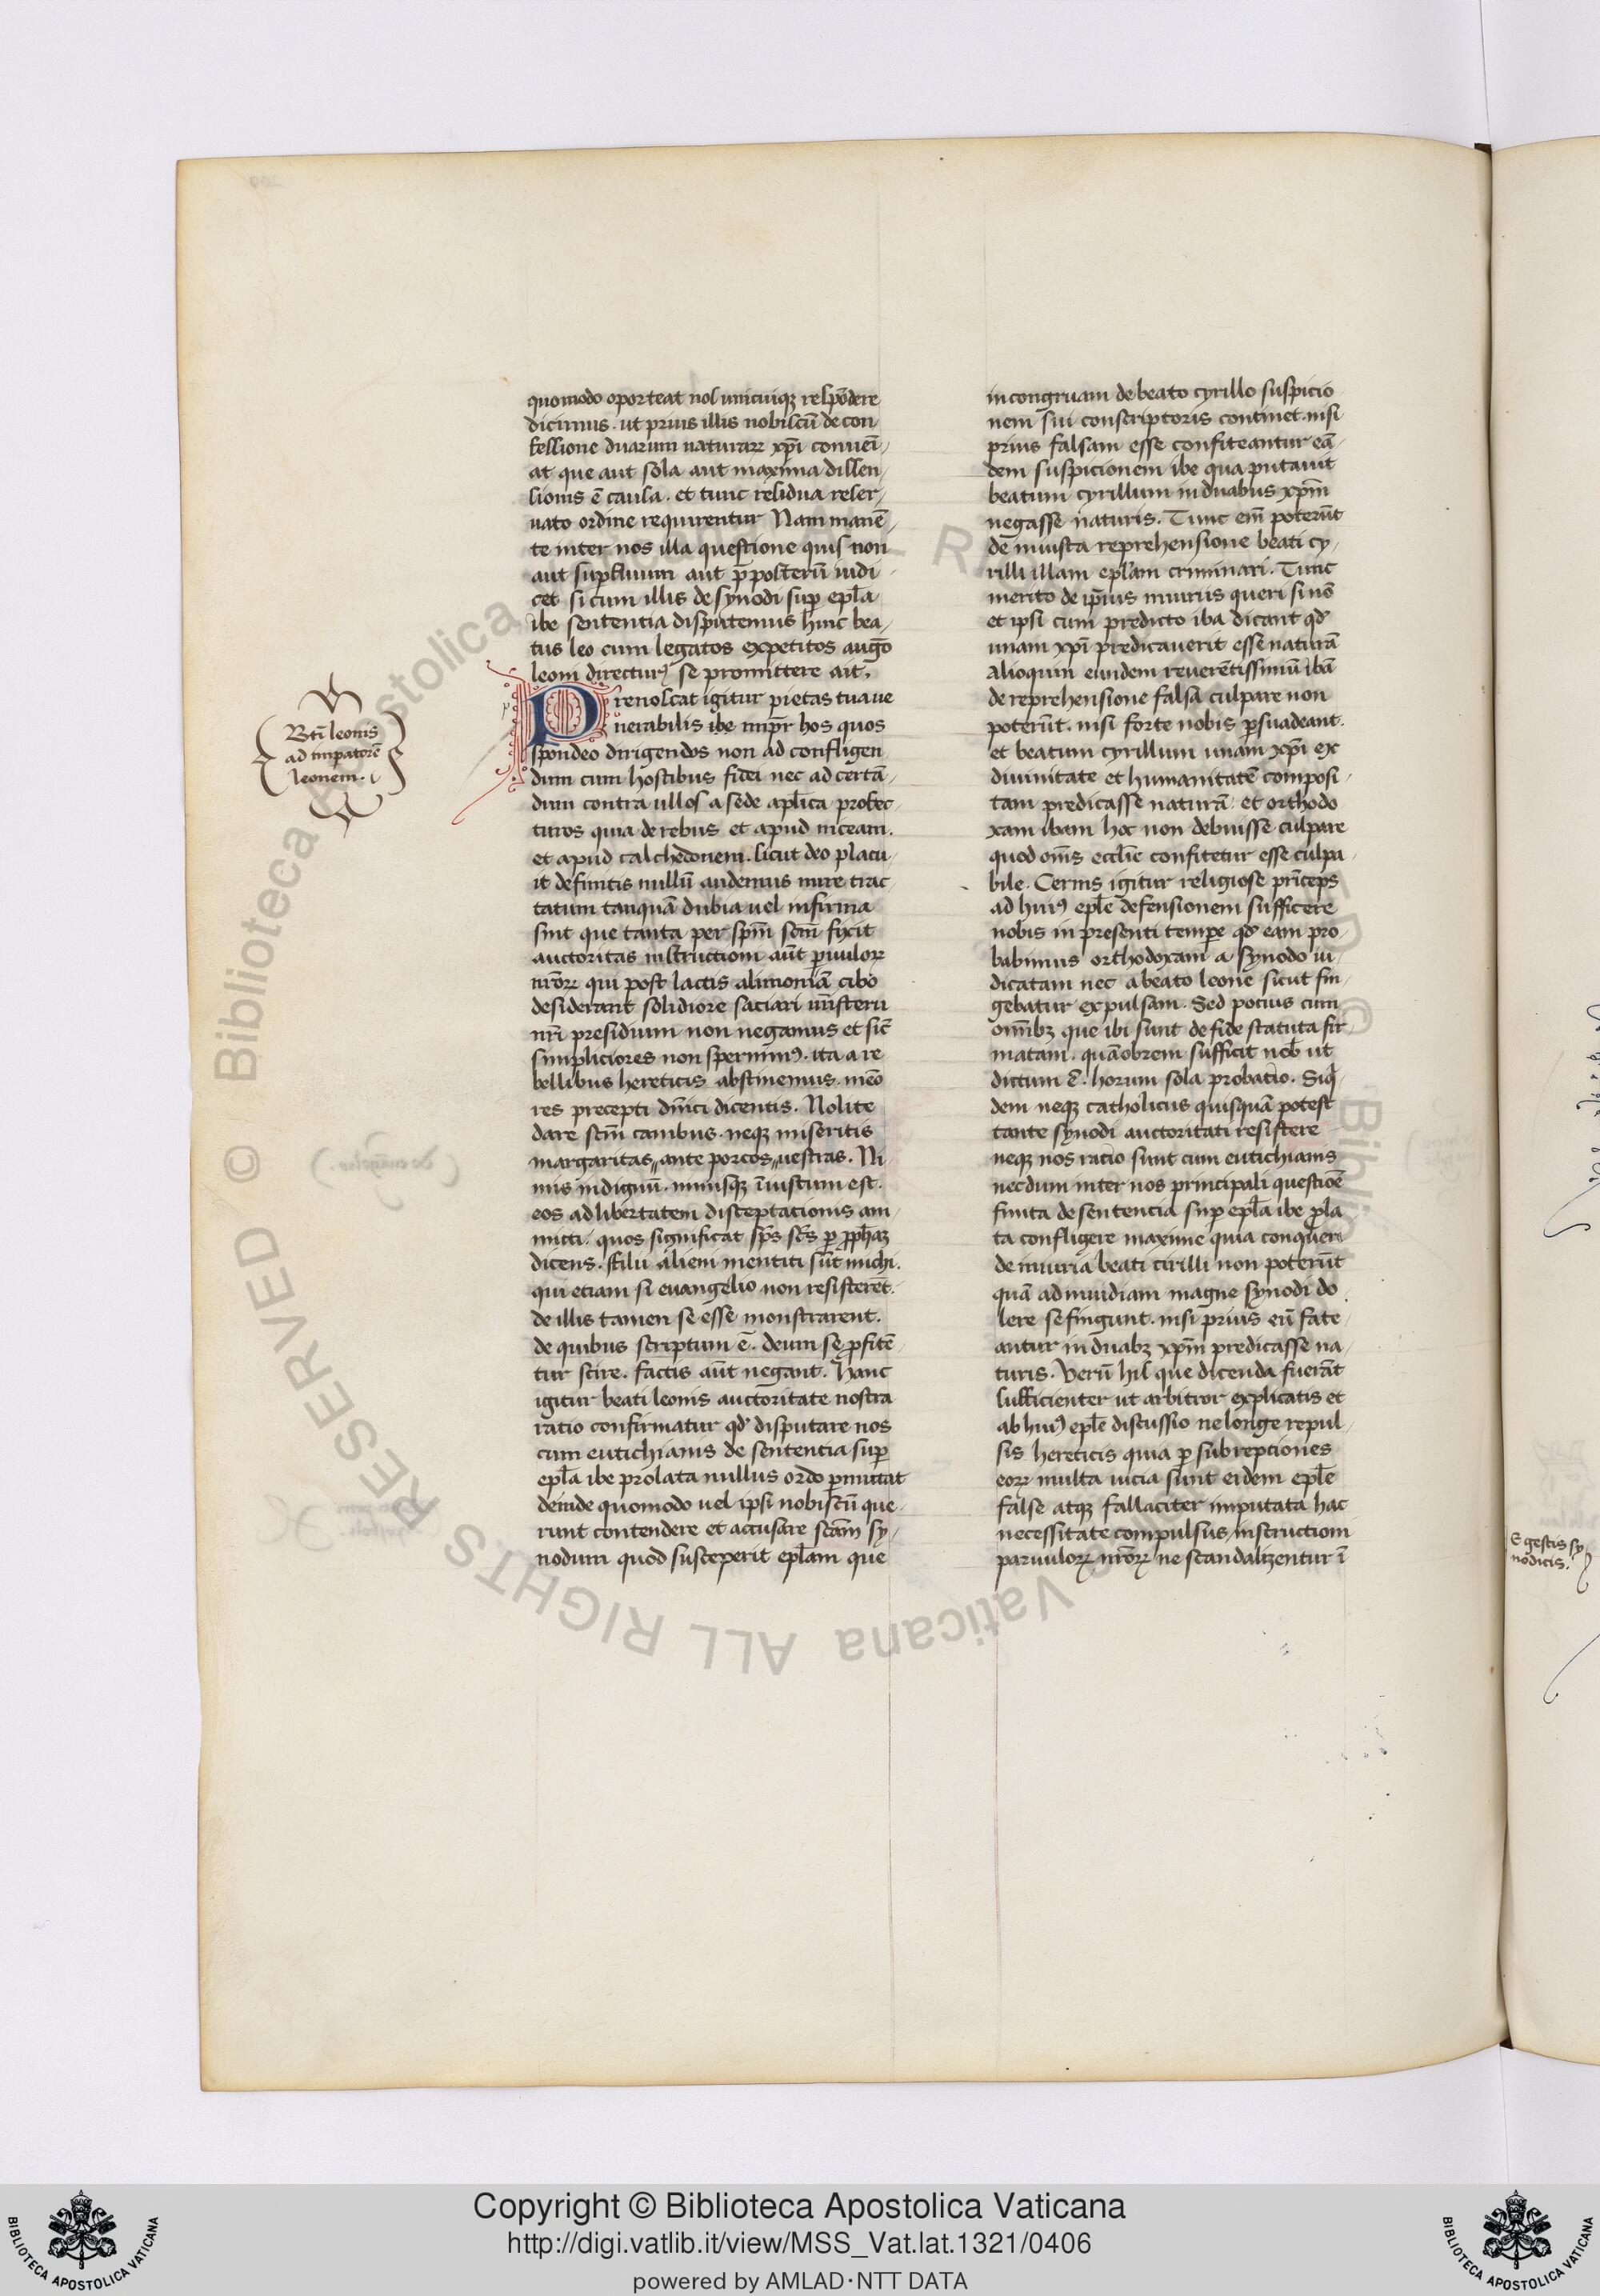 quomodo oporteat nos unicuiqꝫ respōdere
dicimus . ut prius illis nobiscū de con
fessione duarum naturaꝝ xp̄i conueī-
at que aut sola aut maxima dissen-
sionis ē causa . et tunc residua reser-
uato ordine requirentur Nam manē-
te inter nos illa questione quis non
aut suꝑfluum aut p̄posterū iudi-
cet si cum illis de synodi suꝑ ep̄la
ibe sententia disputemus hinc bea-
tus leo cum legatos expetitos augo
leoni directurꝰ se promittere ait .
Prenoscat igitur pietas tua ue
nerabilis ibe imꝑr hos quos
spondeo dirigendos non ad confligen
dum cum hostibus fidei nec ad certā-
dum contra ullos a sede ap̄lica profec-
turos quia de rebus et apud niceam .
et apud calchedonem . sicut deo placu-
it definitis nullū audemus inire trac-
tatum tanquā dubia uel infirma
sint que tanta per sp̄m sc̄m fixit
auctoritas instructioni aūt ꝑuuloꝝ
nr̄oꝝ qui post lactis alimoniā cibo
desiderant solidiore saciari mīsterii
nr̄i presidium non negamus et sic̄
simpliciores non spernimꝰ . ita a re
bellibus hereticis abstinemus . meō
res precepti dn̄ici dicentis . Nolite
dare sc̄m canibus . neqꝫ miseritis
margaritas „ ante porcos „ uestras . Ni-
mis indignū . nimisqꝫ īiustum est .
eos ad libertatem disceptationis am-
mitti . quos significat sp̄s sc̄s ꝑ ꝓph̄aꝫ
dicens . ffilii alieni mentiti sūt michi .
qui etiam si euangelio non resisterēt .
de illis tamen se esse monstrarent .
de quibus scriptum ē . deum se ꝓfitē
tur scire . factis aūt negant . Hanc
igitur beati leonis auctoritate nostra
ratio confirmatur qd' disputare nos
cum eutichianis de sententia suꝑ
ep̄la ibe prolata nullus ordo ꝑmittat
deinde quomodo uel ipsi nobiscū que-
runt contendere et accusare sc̄am sy-
nodum quod susceperit ep̄lam que
Bt̄i leonis
ad imperatorē
leonem .
incongruam de beato cyrillo suspicio
nem sui conscriptoris continet . nisi
prius falsam esse confiteantur eā-
dem suspicionem ibe qua putauit
beatum cyrillum in duabus xp̄m
negasse naturis . Tunc em̄ poterūt
de iniusta reprehensione beati cy-
rilli illam ep̄lam criminari . Tunc
merito de ip̄ius iniuriis queri si nō
et ipsi cum predicto iba dicant qd'
unam xp̄i predicauerit esse naturā
alioquin eundem reuerētissimū ibā
de reprehensione falsa culpare non
poterūt . nisi forte nobis ꝑsuadeant .
et beatum cyrillum unam xp̄i ex
diuinitate et humanitatē composi-
tam predicasse naturā et orthodo
xam ibam hoc non debuisse culpare
quod om̄s eccl̄ie confitetur esse culpa-
bile . Cernis igitur religiose prīceps
ad huiꝰ ep̄le defensionem sufficere
nobis in presenti tempe qd' eam pro-
babimus orthodoxam a synodo iu-
dicatam nec a beato leone sicut fin-
gebatur expulsam . Sed pocius cum
om̄ibꝫ que ibi sunt de fide statuta fir-
matam . quāobrem sufficit nob̄ ut
dictum ē . horum sola probatio . Siq̄-
dem neqꝫ catholicus quisquā potest
tante synodi auctoritati resistere
neqꝫ nos ratio sunt cum eutichianis
necdum inter nos principali questiōe
finita de sentencia suꝑ ep̄la ibe ꝓla
ta confligere maxime quia conqueri
de iniuria beati cirilli non poterūt
quā ad inuidiam magne synodi do-
lere se fingunt . nisi prius eū fate-
antur in duabꝫ xp̄m predicasse na-
turis . Verū hiis que dicenda fuerāt
sufficienter ut arbitror explicatis et
ab huiꝰ ep̄le discussio ne longe repul-
sis hereticis quia ꝑ subreptiones
eoꝝ multa uicia sunt eidem ep̄le
false atqꝫ fallaciter imputata hac
necessitate compulsus instructioni
paruuloꝝ nr̄oꝝ ne scandalizentur ī
E gestis sy
nodicis .
Copyright © Biblioteca Apostolica Vaticana
http://digi.vatlib.it/view/MSS_Vat.lat.1321/0406
powered by AMLAD·NTT DATA
BIBLIOTECA APOSTOLICA VATICANA
BIBLIOTECA APOSTOLICA VATICANA